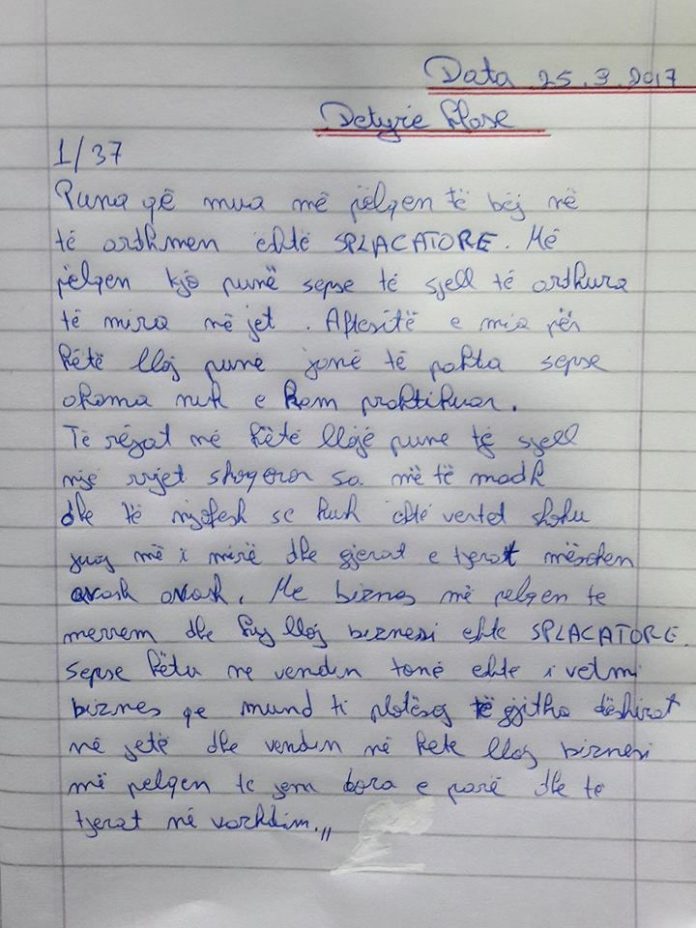 Data 25.9.2017
Detyrë klase
1/37
Puna që mua më pëlqen të bëj në
të ardhmen është SPLACATORE. Më
pëlqen kjo punë sepse të sjell të ardhura
të mira në jet. Aftesitë e mia për
këtë lloj pune janë të pakta sepse
akoma nuk e kam praktikuar.
Të rëjat në këtë llojë pune të sjell
një rrjet shoqeror sa më të madh
dhe të njofesh se kush ështé vertet shoku
juaj më i mirë dhe gjerat e tjerat mësohen
avash avash. Me biznes më pelqen te
merrem dhe ky lloj biznesi eshte SPLACATORE.
Sepse këtu ne vendin tonë eshte i vetmi
biznes qe mund ti plotësoj të gjitha dëshirat
në jetë dhe vendin në kete lloj biznesi
më pelqen te jem bora e parë dhe te
tjerat në vazhdim.,,